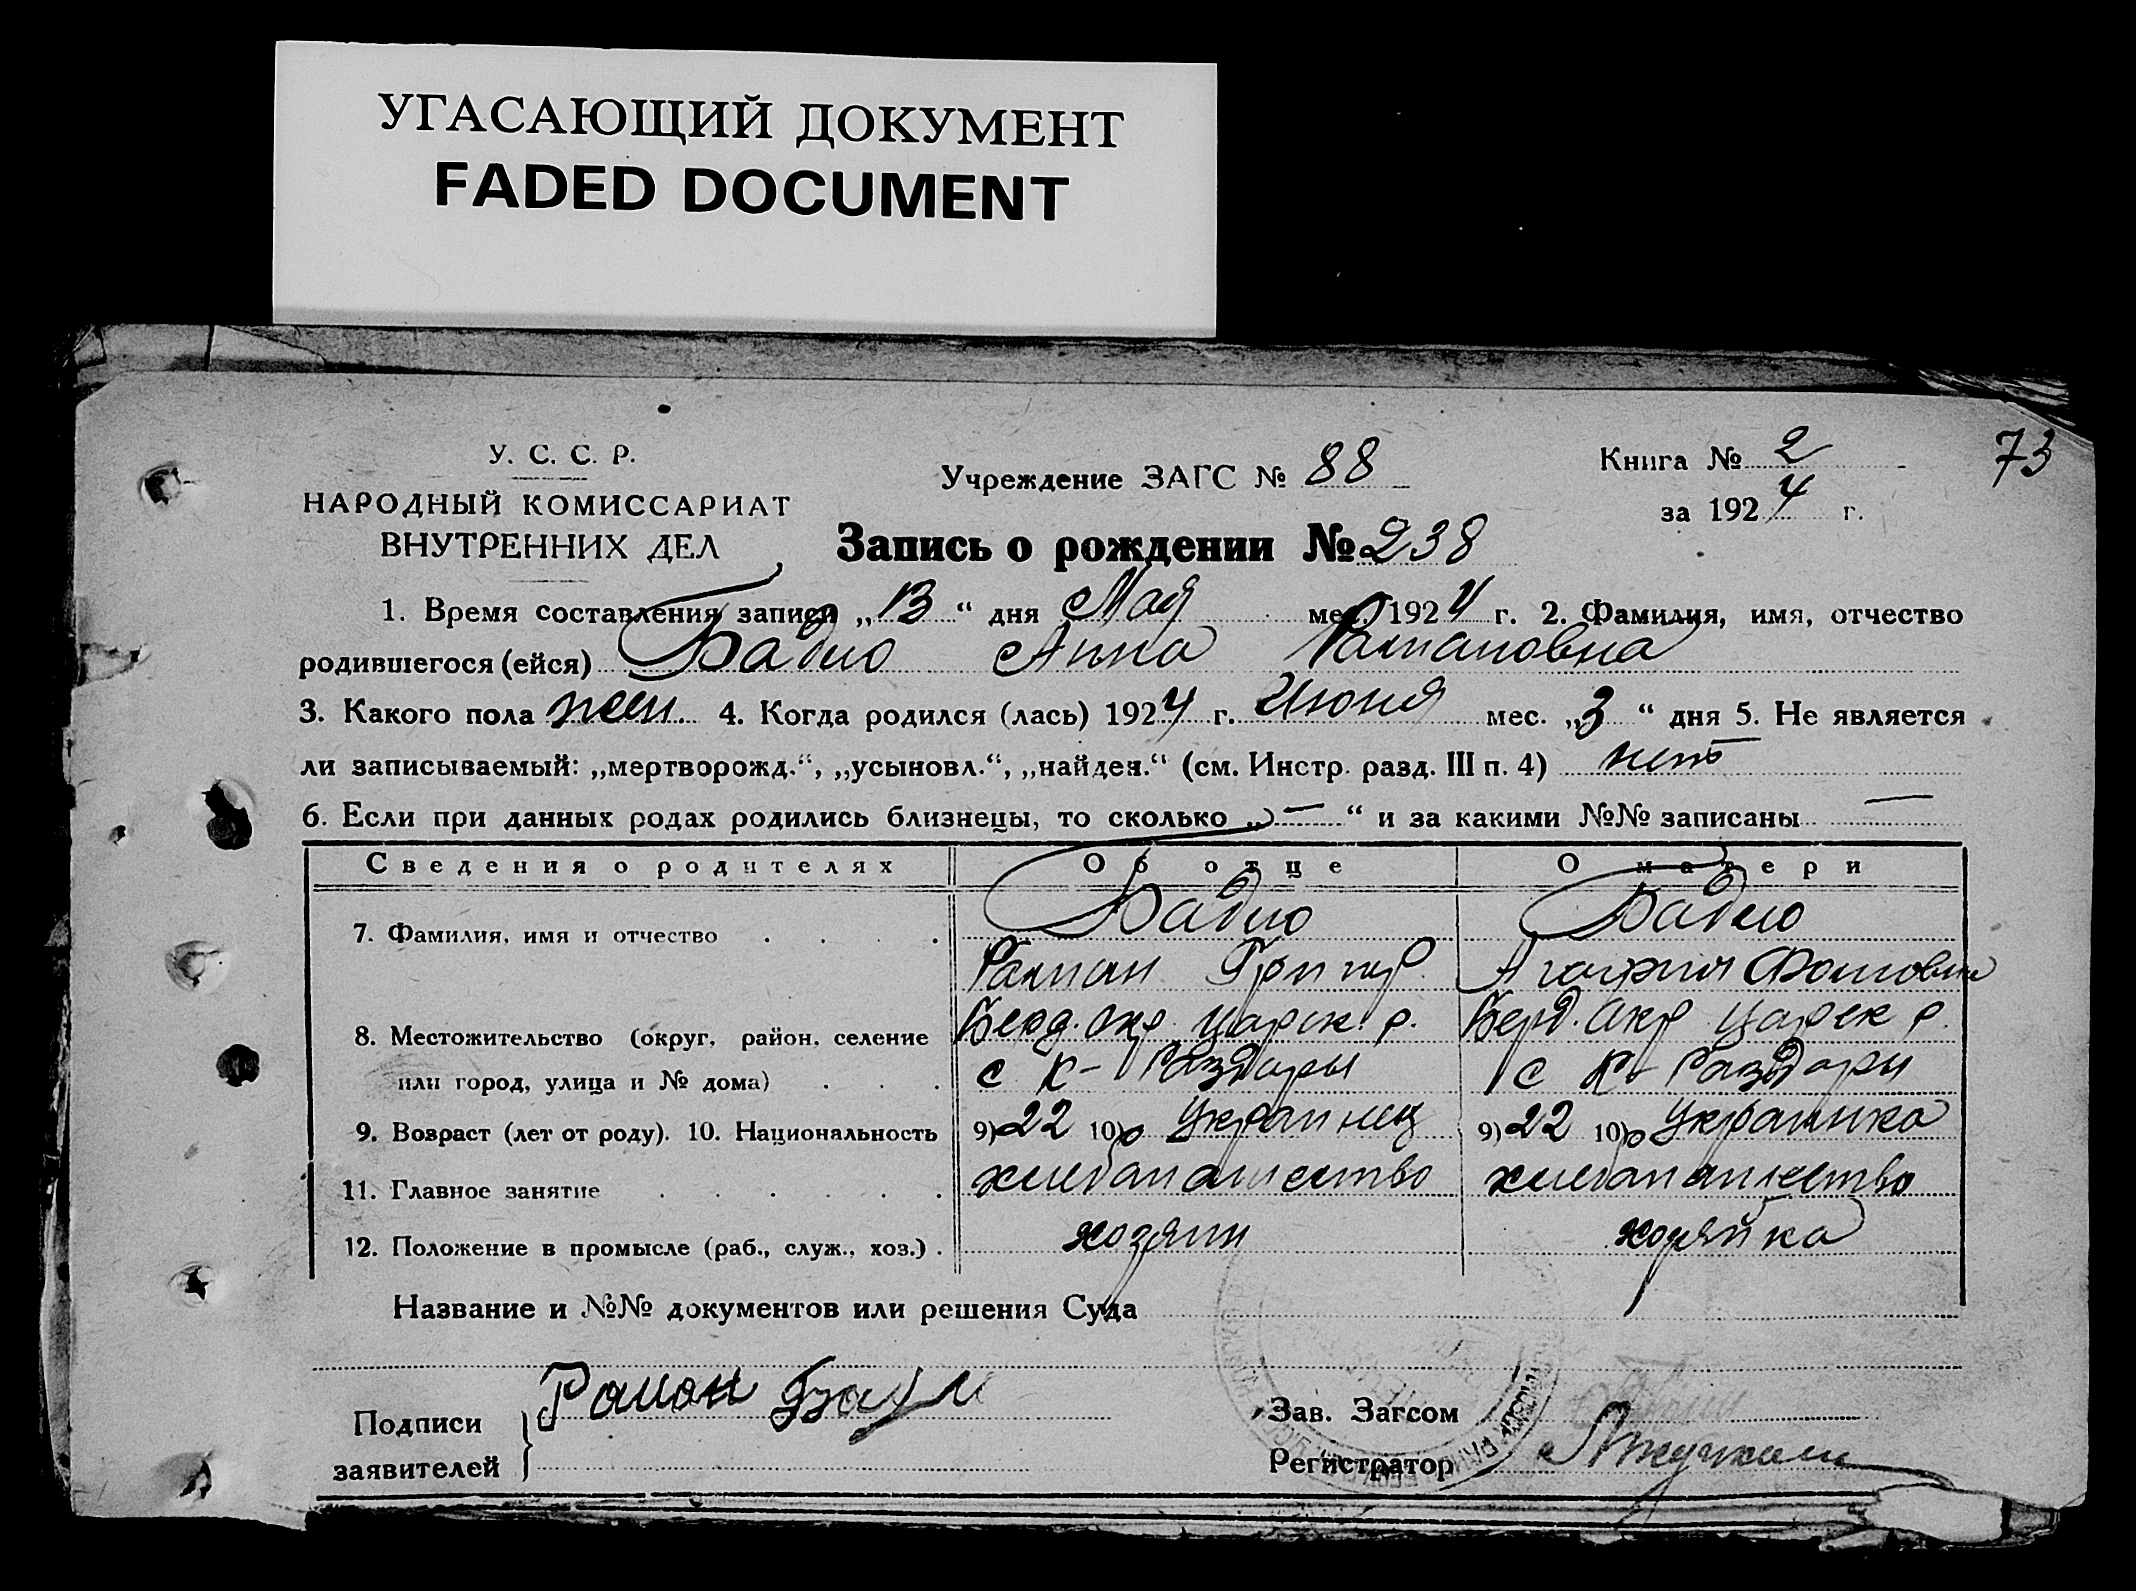 УГАСАЮЩИЙ ДОКУМЕНТ
FADED DOCUMENT
У. С. С. Р.
НАРОДНЫЙ КОМИССАРИАТ
ВНУТРЕННИХ ДЕЛ
Учреждение ЗАГС № 88
Книга № 2
за 1924 г.
73
Запись о рождении № 238
1. Время составления записи „13“ дня Мая мес. 1924 г. 2. Фамилия, имя, отчество
родившегося (ейся) Бадио Анна Рамановна
3. Какого пола жен. 4. Когда родился (лась) 1924 г. Июня мес. „3“ дня 5. Не является
ли записываемый: „мертворожд.“, „усыновл.“, „найден.“ (см. Инстр. разд. III п. 4) нет
6. Если при данных родах родились близнецы, то сколько „—“ и за какими №№ записаны —
Сведения о родителях Об отце О матери
7. Фамилия, имя и отчество Бадио Бадио
Раман Григор. Агафия Фомовна
8. Местожительство (округ, район, селение Берд. Окр Царек. р. Берд. Окр Царек р.
или город, улица и № дома) с К- Раздоры с К- Раздоры
9. Возраст (лет от роду). 10. Национальность 9) 22 10) Украинец 9) 22 10) Украинка
11. Главное занятие хлебапашество хлебапашество
12. Положение в промысле (раб., служ., хоз.) хозяин хозяйка
Название и №№ документов или решения Суда
Подписи Раман
заявителей
Зав. Загсом
Регистратор